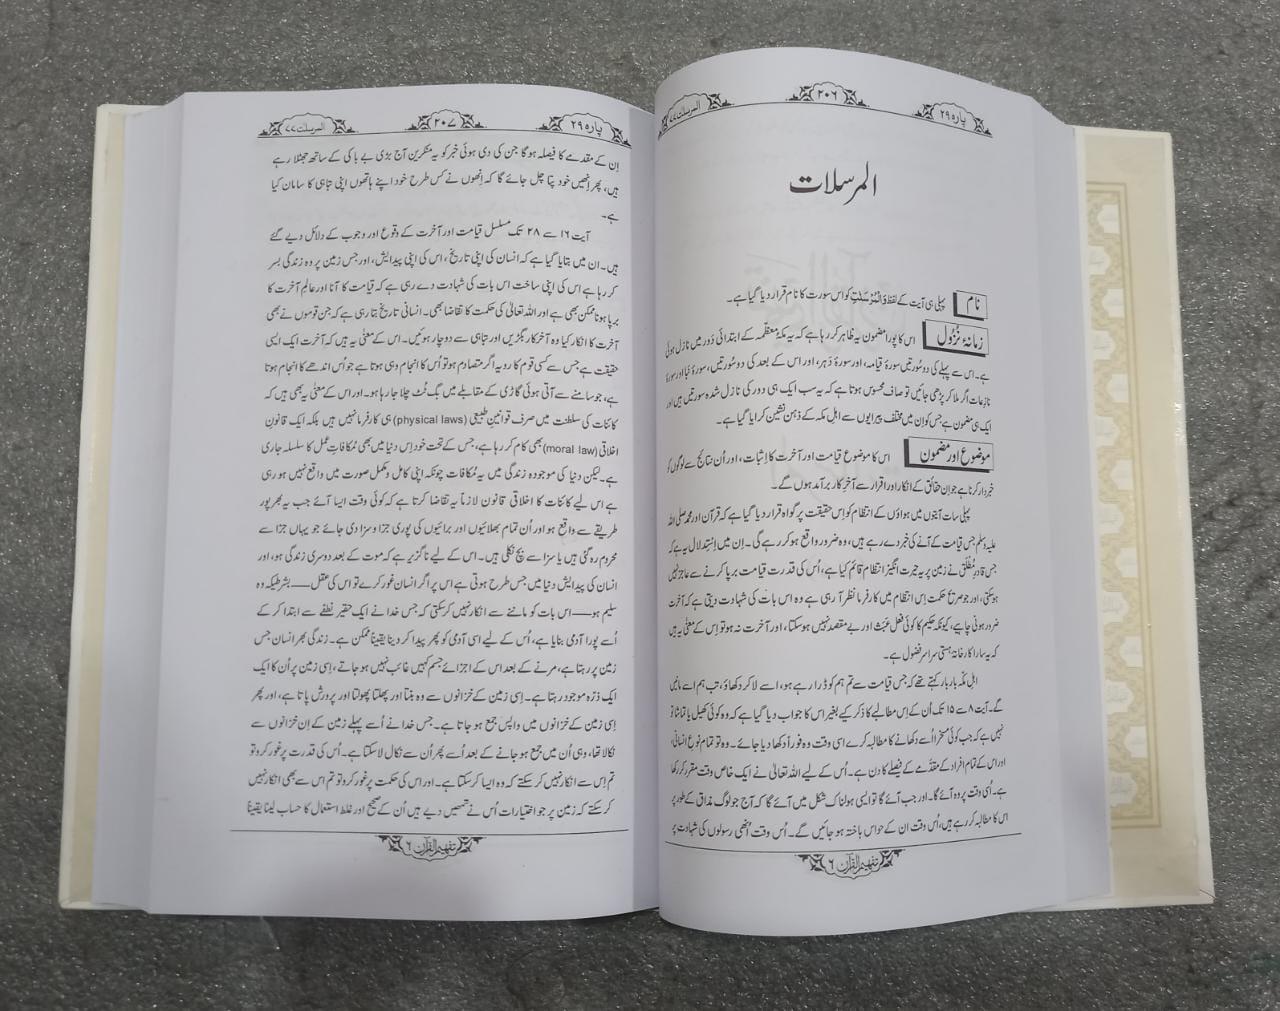 پارہ ۲۹
۲۰۶
المرسلت ۷۷
المرسلات
نام
پہلی ہی آیت کے لفظ وَالْمُرْسَلٰتِ کو اس سورت کا نام قرار دیا گیا ہے۔
زمانۂ نزول
اس کا پورا مضمون یہ ظاہر کر رہا ہے کہ یہ مکۂ معظمہ کے ابتدائی دَور میں نازل ہوئی
ہے۔ اس سے پہلے کی دو سُورتیں سورۂ قیامہ، اور سورۂ دَہر، اور اس کے بعد کی دو سُورتیں، سورۂ نبا اور سورۂ
نازعات اگر ملا کر پڑھی جائیں تو صاف محسوس ہوتا ہے کہ یہ سب ایک ہی دور کی نازل شدہ سورتیں ہیں اور
ایک ہی مضمون ہے جس کو اِن میں مختلف پیرایوں سے اہلِ مکہ کے ذہن نشین کرایا گیا ہے۔
موضوع اور مضمون
اس کا موضوع قیامت اور آخرت کا اِثبات، اور اُن نتائج سے لوگوں کو
خبردار کرنا ہے جو اِن حقائق کے انکار اور اقرار سے آخرِ کار برآمد ہوں گے۔
پہلی سات آیتوں میں ہواؤں کے انتظام کو اِس حقیقت پر گواہ قرار دیا گیا ہے کہ قرآن اور محمد صلی اللہ
علیہ وسلم جس قیامت کے آنے کی خبر دے رہے ہیں، وہ ضرور واقع ہو کر رہے گی۔ اِن میں اِستدلال یہ ہے کہ
جس قادرِ مُطْلَق نے زمین پر یہ حیرت انگیز انتظام قائم کیا ہے، اُس کی قدرت قیامت برپا کرنے سے عاجز نہیں
ہو سکتی، اور جو صریح حکمت اِس انتظام میں کارفرما نظر آ رہی ہے وہ اس بات کی شہادت دیتی ہے کہ آخرت
ضرور ہونی چاہیے، کیونکہ حکیم کا کوئی فعل عَبَث اور بے مقصد نہیں ہو سکتا، اور آخرت نہ ہو تو اِس کے معنٰی یہ ہیں
کہ یہ سارا کارخانۂ ہستی سراسر فضول ہے۔
اہلِ مکّہ بار بار کہتے تھے کہ جس قیامت سے تم ہم کو ڈرا رہے ہو، اسے لا کر دکھاؤ، تب ہم اسے مانیں
گے۔ آیت ۸ سے ۱۵ تک اُن کے اِس مطالبے کا ذکر کیے بغیر اس کا جواب دیا گیا ہے کہ وہ کوئی کھیل یا تماشا تو
نہیں ہے کہ جب کوئی مسخرا اُسے دکھانے کا مطالبہ کرے اسی وقت وہ فوراً دکھا دیا جائے۔ وہ تو تمام نوعِ انسانی
اور اس کے تمام افراد کے مقدّمے کے فیصلے کا دن ہے۔ اُس کے لیے اللہ تعالیٰ نے ایک خاص وقت مقرر کر رکھا
ہے۔ اُسی وقت پر وہ آئے گا۔ اور جب آئے گا تو ایسی ہولناک شکل میں آئے گا کہ آج جو لوگ مذاق کے طور پر
اس کا مطالبہ کر رہے ہیں، اُس وقت ان کے حواس باختہ ہو جائیں گے۔ اُس وقت اُنھی رسولوں کی شہادت پر
تفہیم القرآن ۶
پارہ ۲۹
۲۰۷
المرسلت ۷۷
اِن کے مقدمے کا فیصلہ ہوگا جن کی دی ہوئی خبر کو یہ منکرین آج بڑی بے باکی کے ساتھ جھٹلا رہے
ہیں، پھر اِنھیں خود پتا چل جائے گا کہ اِنھوں نے کس طرح خود اپنے ہاتھوں اپنی تباہی کا سامان کیا
ہے۔
آیت ۱۶ سے ۲۸ تک مسلسل قیامت اور آخرت کے وقوع اور وجوب کے دلائل دیے گئے
ہیں۔ ان میں بتایا گیا ہے کہ انسان کی اپنی تاریخ، اس کی اپنی پیدایش، اور جس زمین پر وہ زندگی بسر
کر رہا ہے اس کی اپنی ساخت اس بات کی شہادت دے رہی ہے کہ قیامت کا آنا اور عالمِ آخرت کا
برپا ہونا ممکن بھی ہے اور اللہ تعالیٰ کی حکمت کا تقاضا بھی۔ انسانی تاریخ بتا رہی ہے کہ جن قوموں نے بھی
آخرت کا انکار کیا وہ آخر کار بگڑیں اور تباہی سے دوچار ہوئیں۔ اس کے معنٰی یہ ہیں کہ آخرت ایک ایسی
حقیقت ہے جس سے کسی قوم کا رویہ اگر متصادم ہو تو اُس کا انجام وہی ہوتا ہے جو اُس اندھے کا انجام ہوتا
ہے، جو سامنے سے آتی ہوئی گاڑی کے مقابلے میں بگ ٹُٹ چلا جا رہا ہو۔ اور اس کے معنٰی یہ بھی ہیں کہ
کائنات کی سلطنت میں صرف قوانینِ طبیعی (physical laws) ہی کارفرما نہیں ہیں بلکہ ایک قانونِ
اخلاقی (moral law) بھی کام کر رہا ہے، جس کے تحت خود اِس دنیا میں بھی مُکافاتِ عمل کا سلسلہ جاری
ہے۔ لیکن دنیا کی موجودہ زندگی میں یہ مُکافات چونکہ اپنی کامل و مکمل صورت میں واقع نہیں ہو رہی
ہے اس لیے کائنات کا اخلاقی قانون لازماً یہ تقاضا کرتا ہے کہ کوئی وقت ایسا آئے جب یہ بھرپور
طریقے سے واقع ہو اور اُن تمام بھلائیوں اور برائیوں کی پوری جزا و سزا دی جائے جو یہاں جزا سے
محروم رہ گئی ہیں یا سزا سے بچ نکلی ہیں۔ اس کے لیے ناگزیر ہے کہ موت کے بعد دوسری زندگی ہو، اور
انسان کی پیدایش دنیا میں جس طرح ہوتی ہے اس پر اگر انسان غور کرے تو اس کی عقل — بشرطیکہ وہ
سلیم ہو — اس بات کو ماننے سے انکار نہیں کر سکتی کہ جس خدا نے ایک حقیر نطفے سے ابتدا کر کے
اُسے پورا آدمی بنایا ہے، اُس کے لیے اسی آدمی کو پھر پیدا کر دینا یقیناً ممکن ہے۔ زندگی بھر انسان جس
زمین پر رہتا ہے، مرنے کے بعد اس کے اجزائے جسم کہیں غائب نہیں ہو جاتے، اِسی زمین پر اُن کا ایک
ایک ذرّہ موجود رہتا ہے۔ اِسی زمین کے خزانوں سے وہ بنتا اور پھلتا پھولتا اور پرورش پاتا ہے، اور پھر
اِسی زمین کے خزانوں میں واپس جمع ہو جاتا ہے۔ جس خدا نے اُسے پہلے زمین کے اِن خزانوں سے
نکالا تھا، وہی اُن میں جمع ہو جانے کے بعد اُسے پھر اُن سے نکال لا سکتا ہے۔ اُس کی قدرت پر غور کرو تو
تم اِس سے انکار نہیں کر سکتے کہ وہ ایسا کر سکتا ہے۔ اور اس کی حکمت پر غور کرو تو تم اس سے بھی انکار نہیں
کر سکتے کہ زمین پر جو اختیارات اُس نے تمھیں دیے ہیں اُن کے صحیح اور غلط استعمال کا حساب لینا یقیناً
تفہیم القرآن ۶